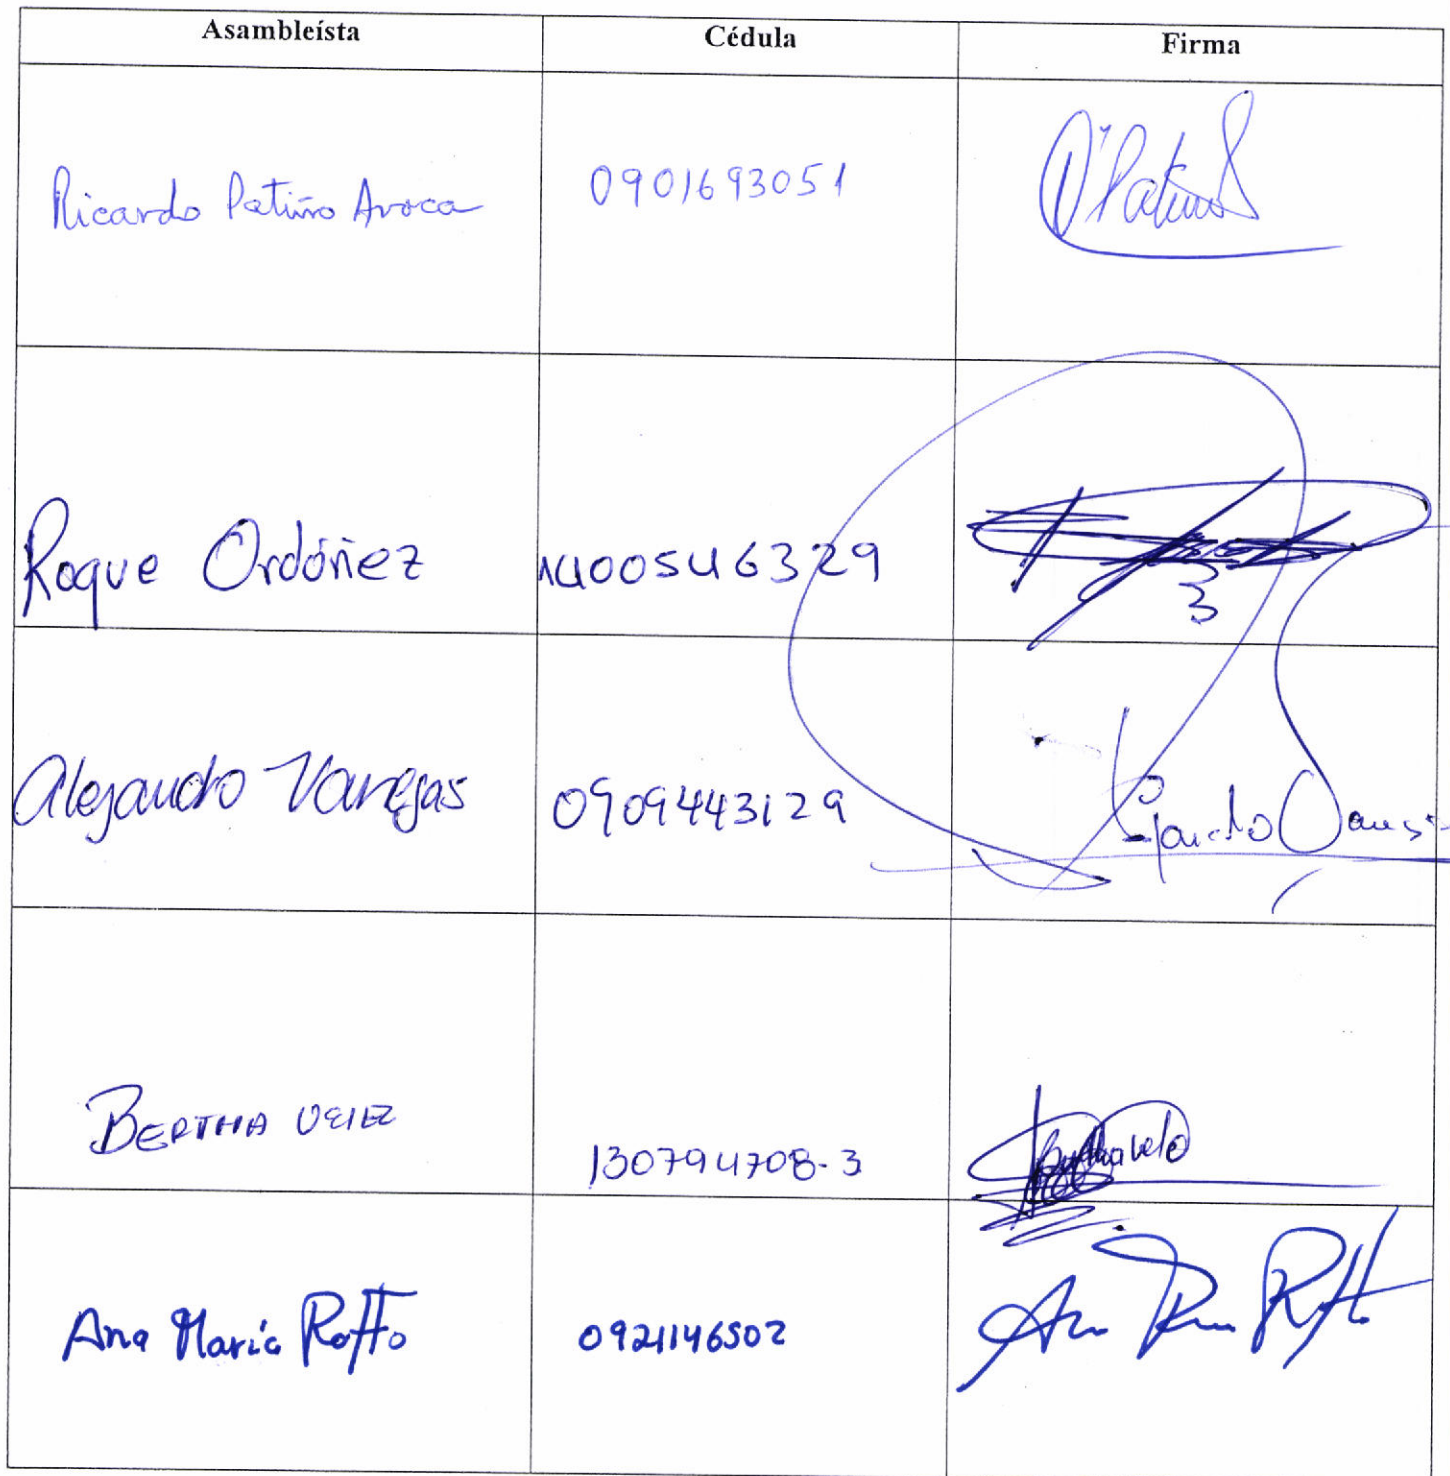 Asambleísta Cédula Firma
Ricardo Patiño Aroca 0901693051
Roque Ordóñez 1400546329
Alejandro Vanegas 0909443129
BERTHA VELEZ 130794708-3
Ana María Raffo 0921146502